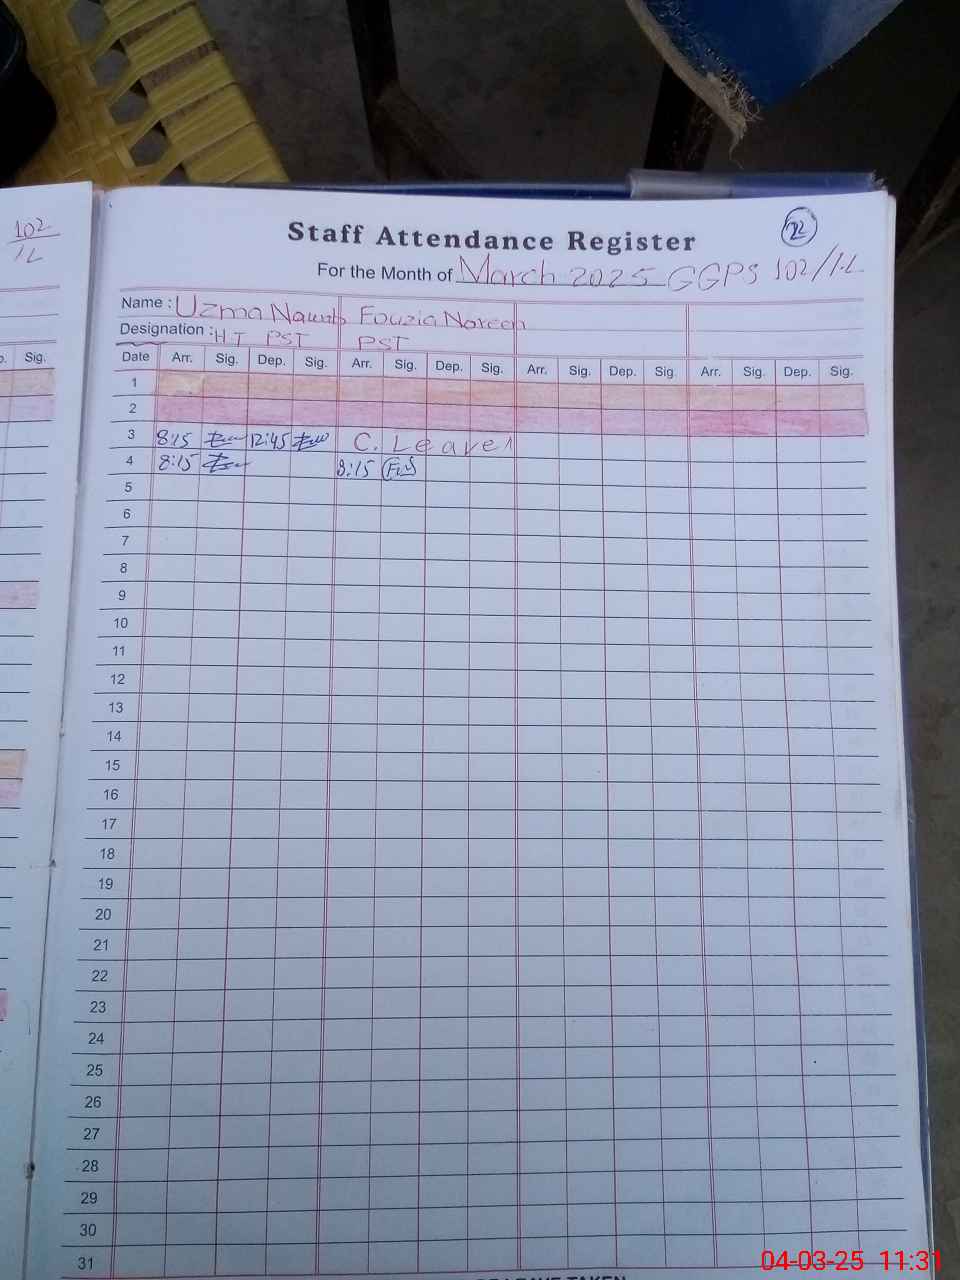 102
1L
22
Staff Attendance Register
For the Month of March 2025 GGPS 102/1.L
Name : Uzma Fouzia Noreen
Designation : H.T PST PST
p. Sig.
Date Arr. Sig. Dep. Sig. Arr. Sig. Dep. Sig. Arr. Sig. Dep. Sig. Arr. Sig. Dep. Sig.
1
2
3 8:15 12:45 C. Leave 1
4 8:15 8:15
5
6
7
8
9
10
11
12
13
14
15
16
17
18
19
20
21
22
23
24
25
26
27
28
29
30
31
04-03-25 11:31